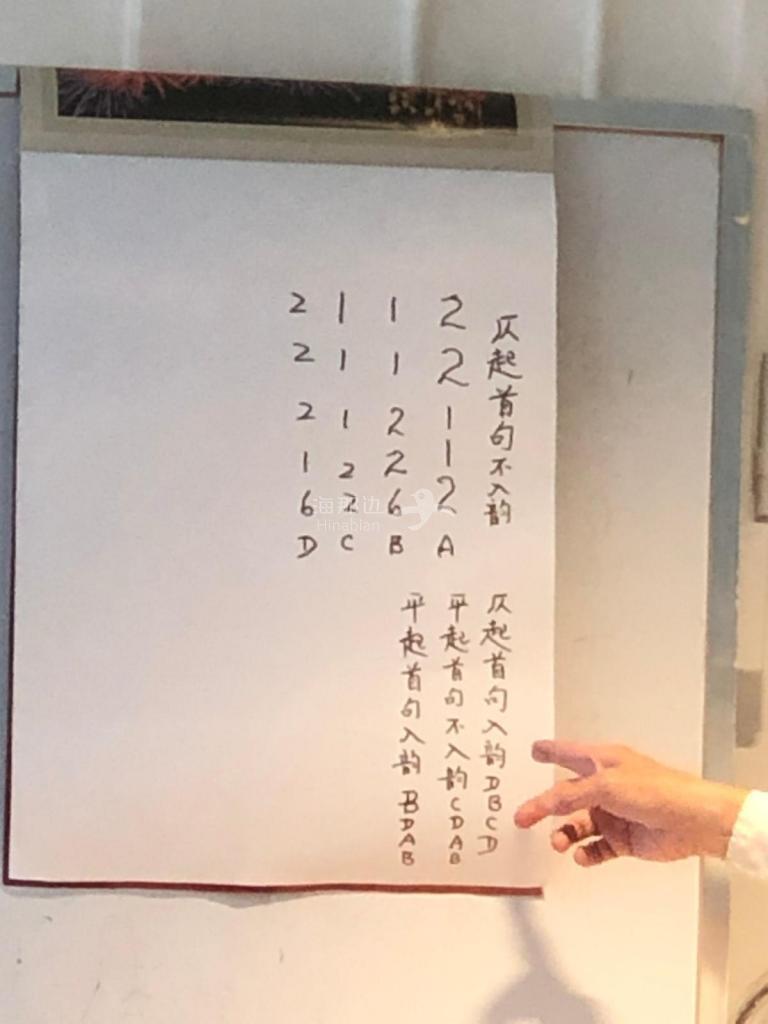 仄起首句不入韵
22112A
11226B
11122C
22216D
仄起首句入韵DBCD
平起首句不入韵CDAB
平起首句入韵BDAB
海那边
Hinabian